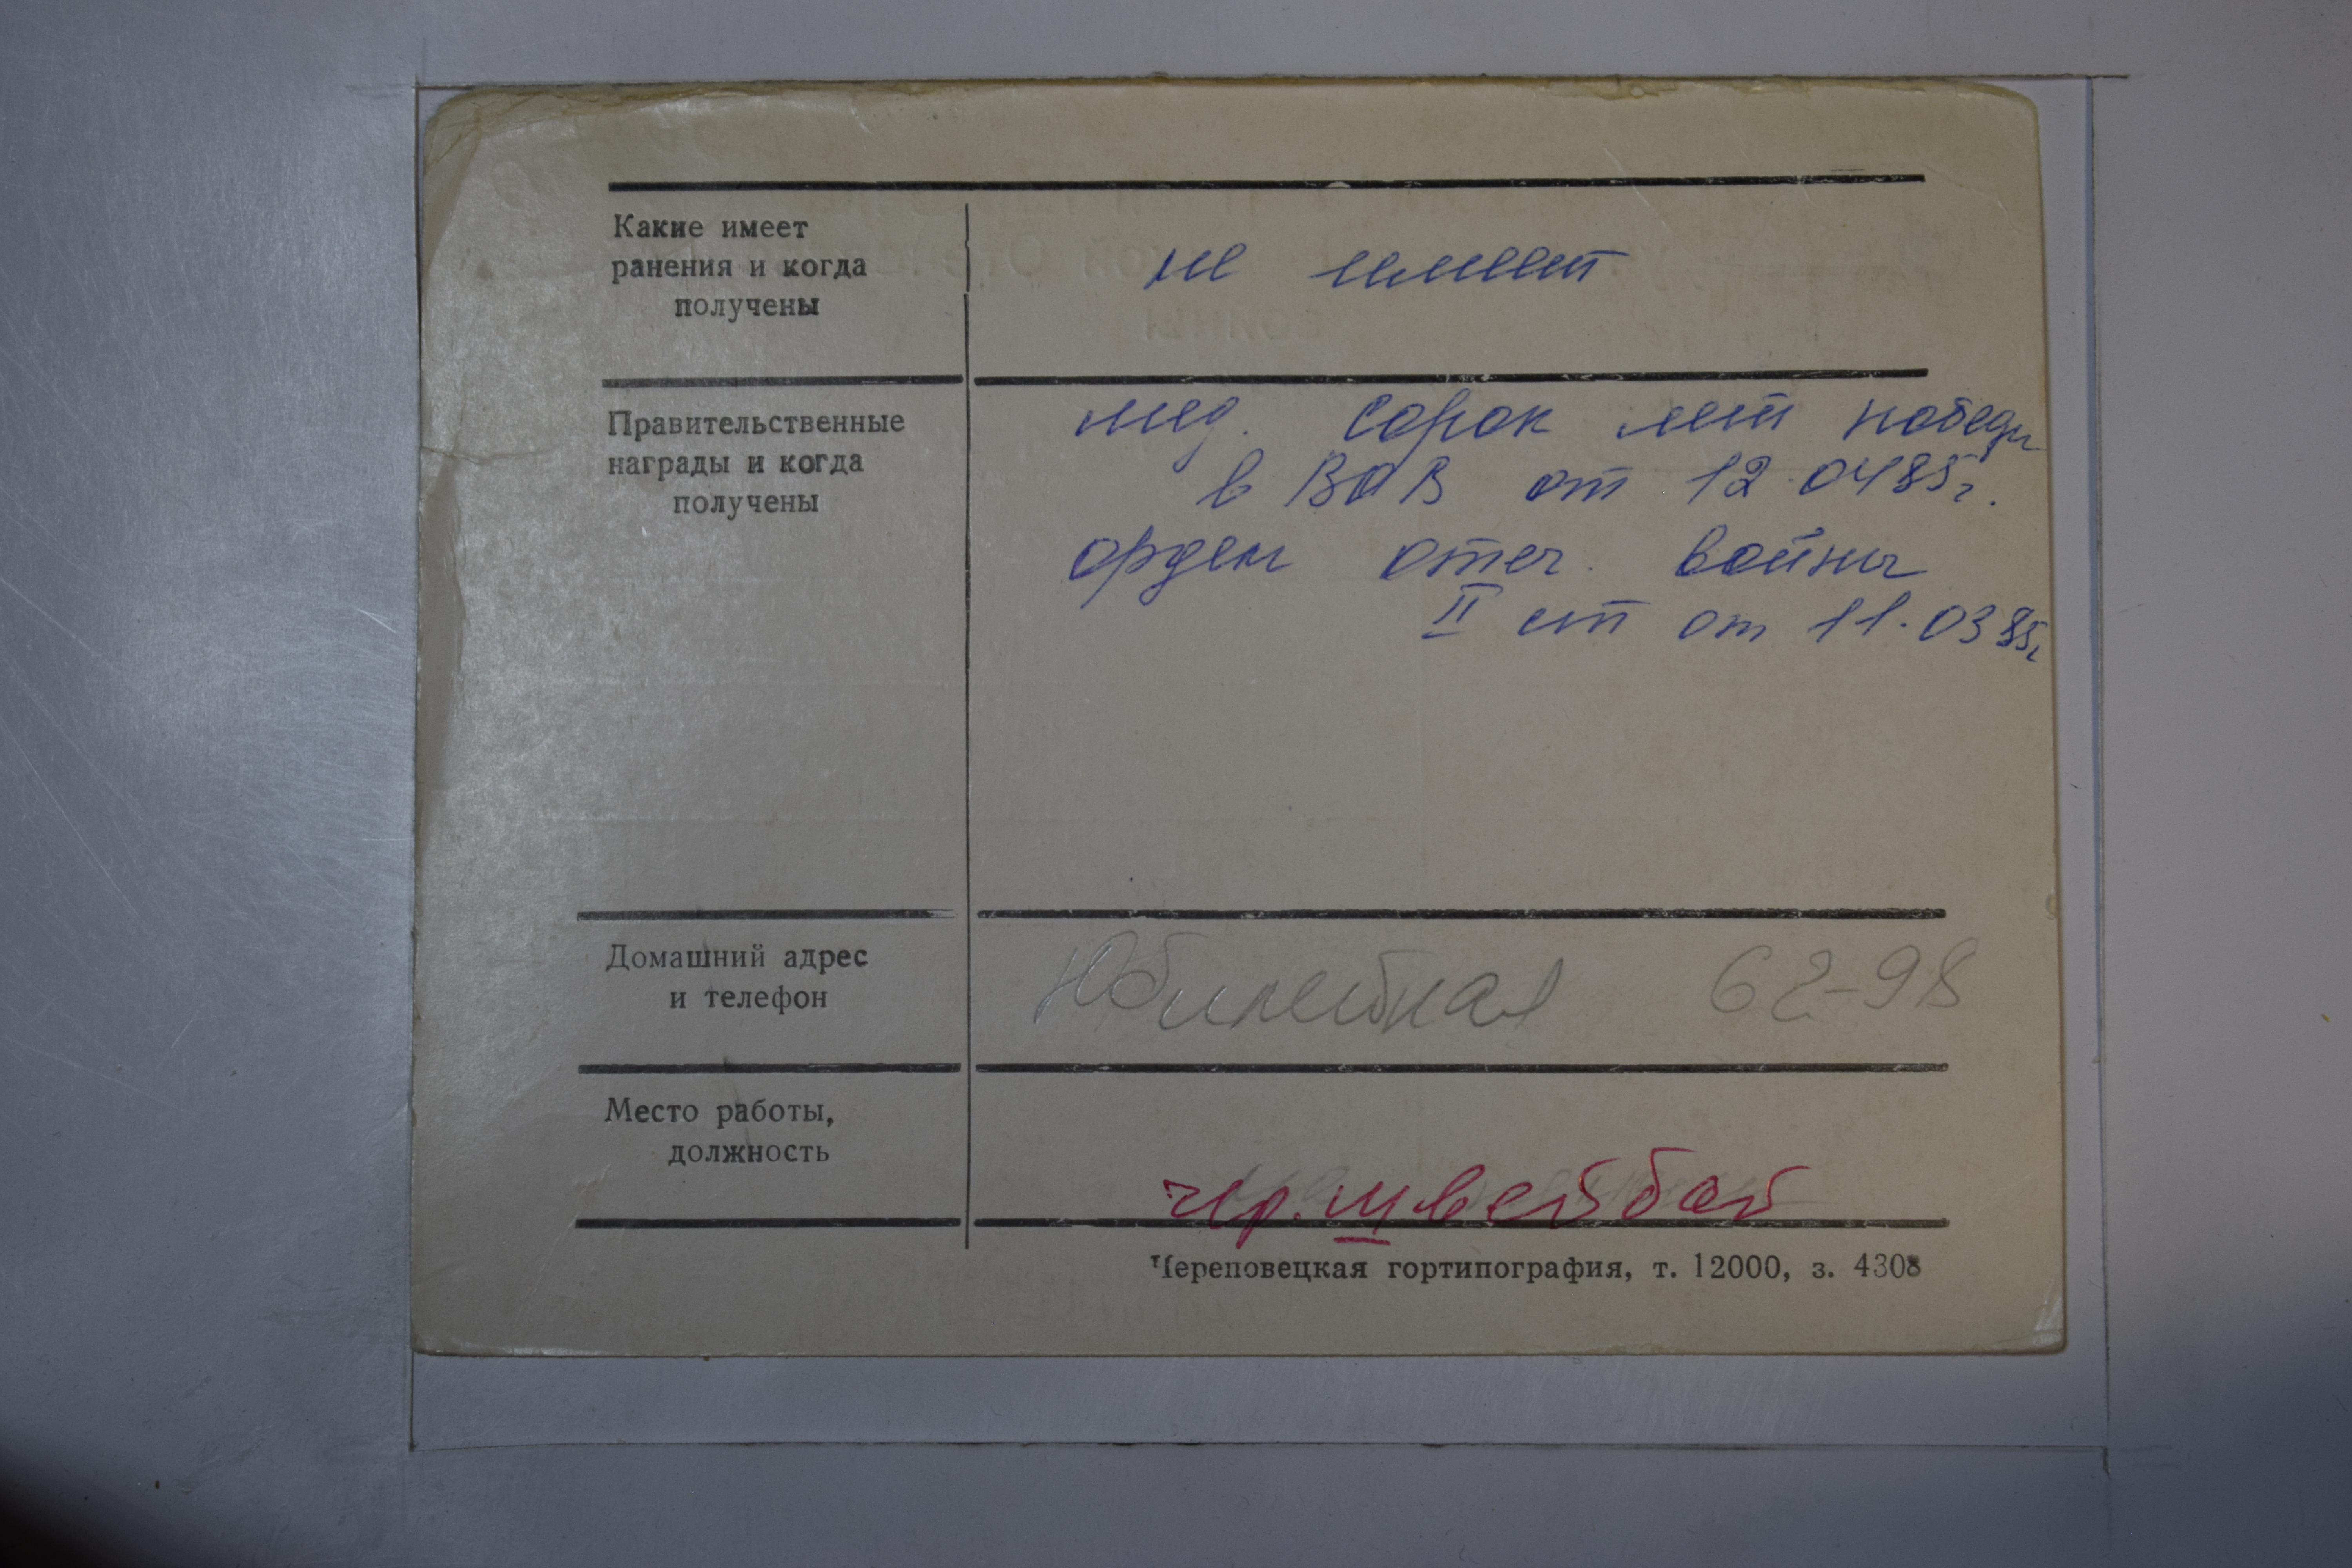 Какие имеет
ранения и когда
получены
не имеет
Правительственные
награды и когда
получены
мед. Сорок лет победы
в ВОВ от 12.0485г.
орден отеч. войны
II ст от 11.0385г
Домашний адрес
и телефон
Юбилейная 62-98
Место работы,
должность
чер. швейбой
Череповецкая гортипография, т. 12000, з. 4308